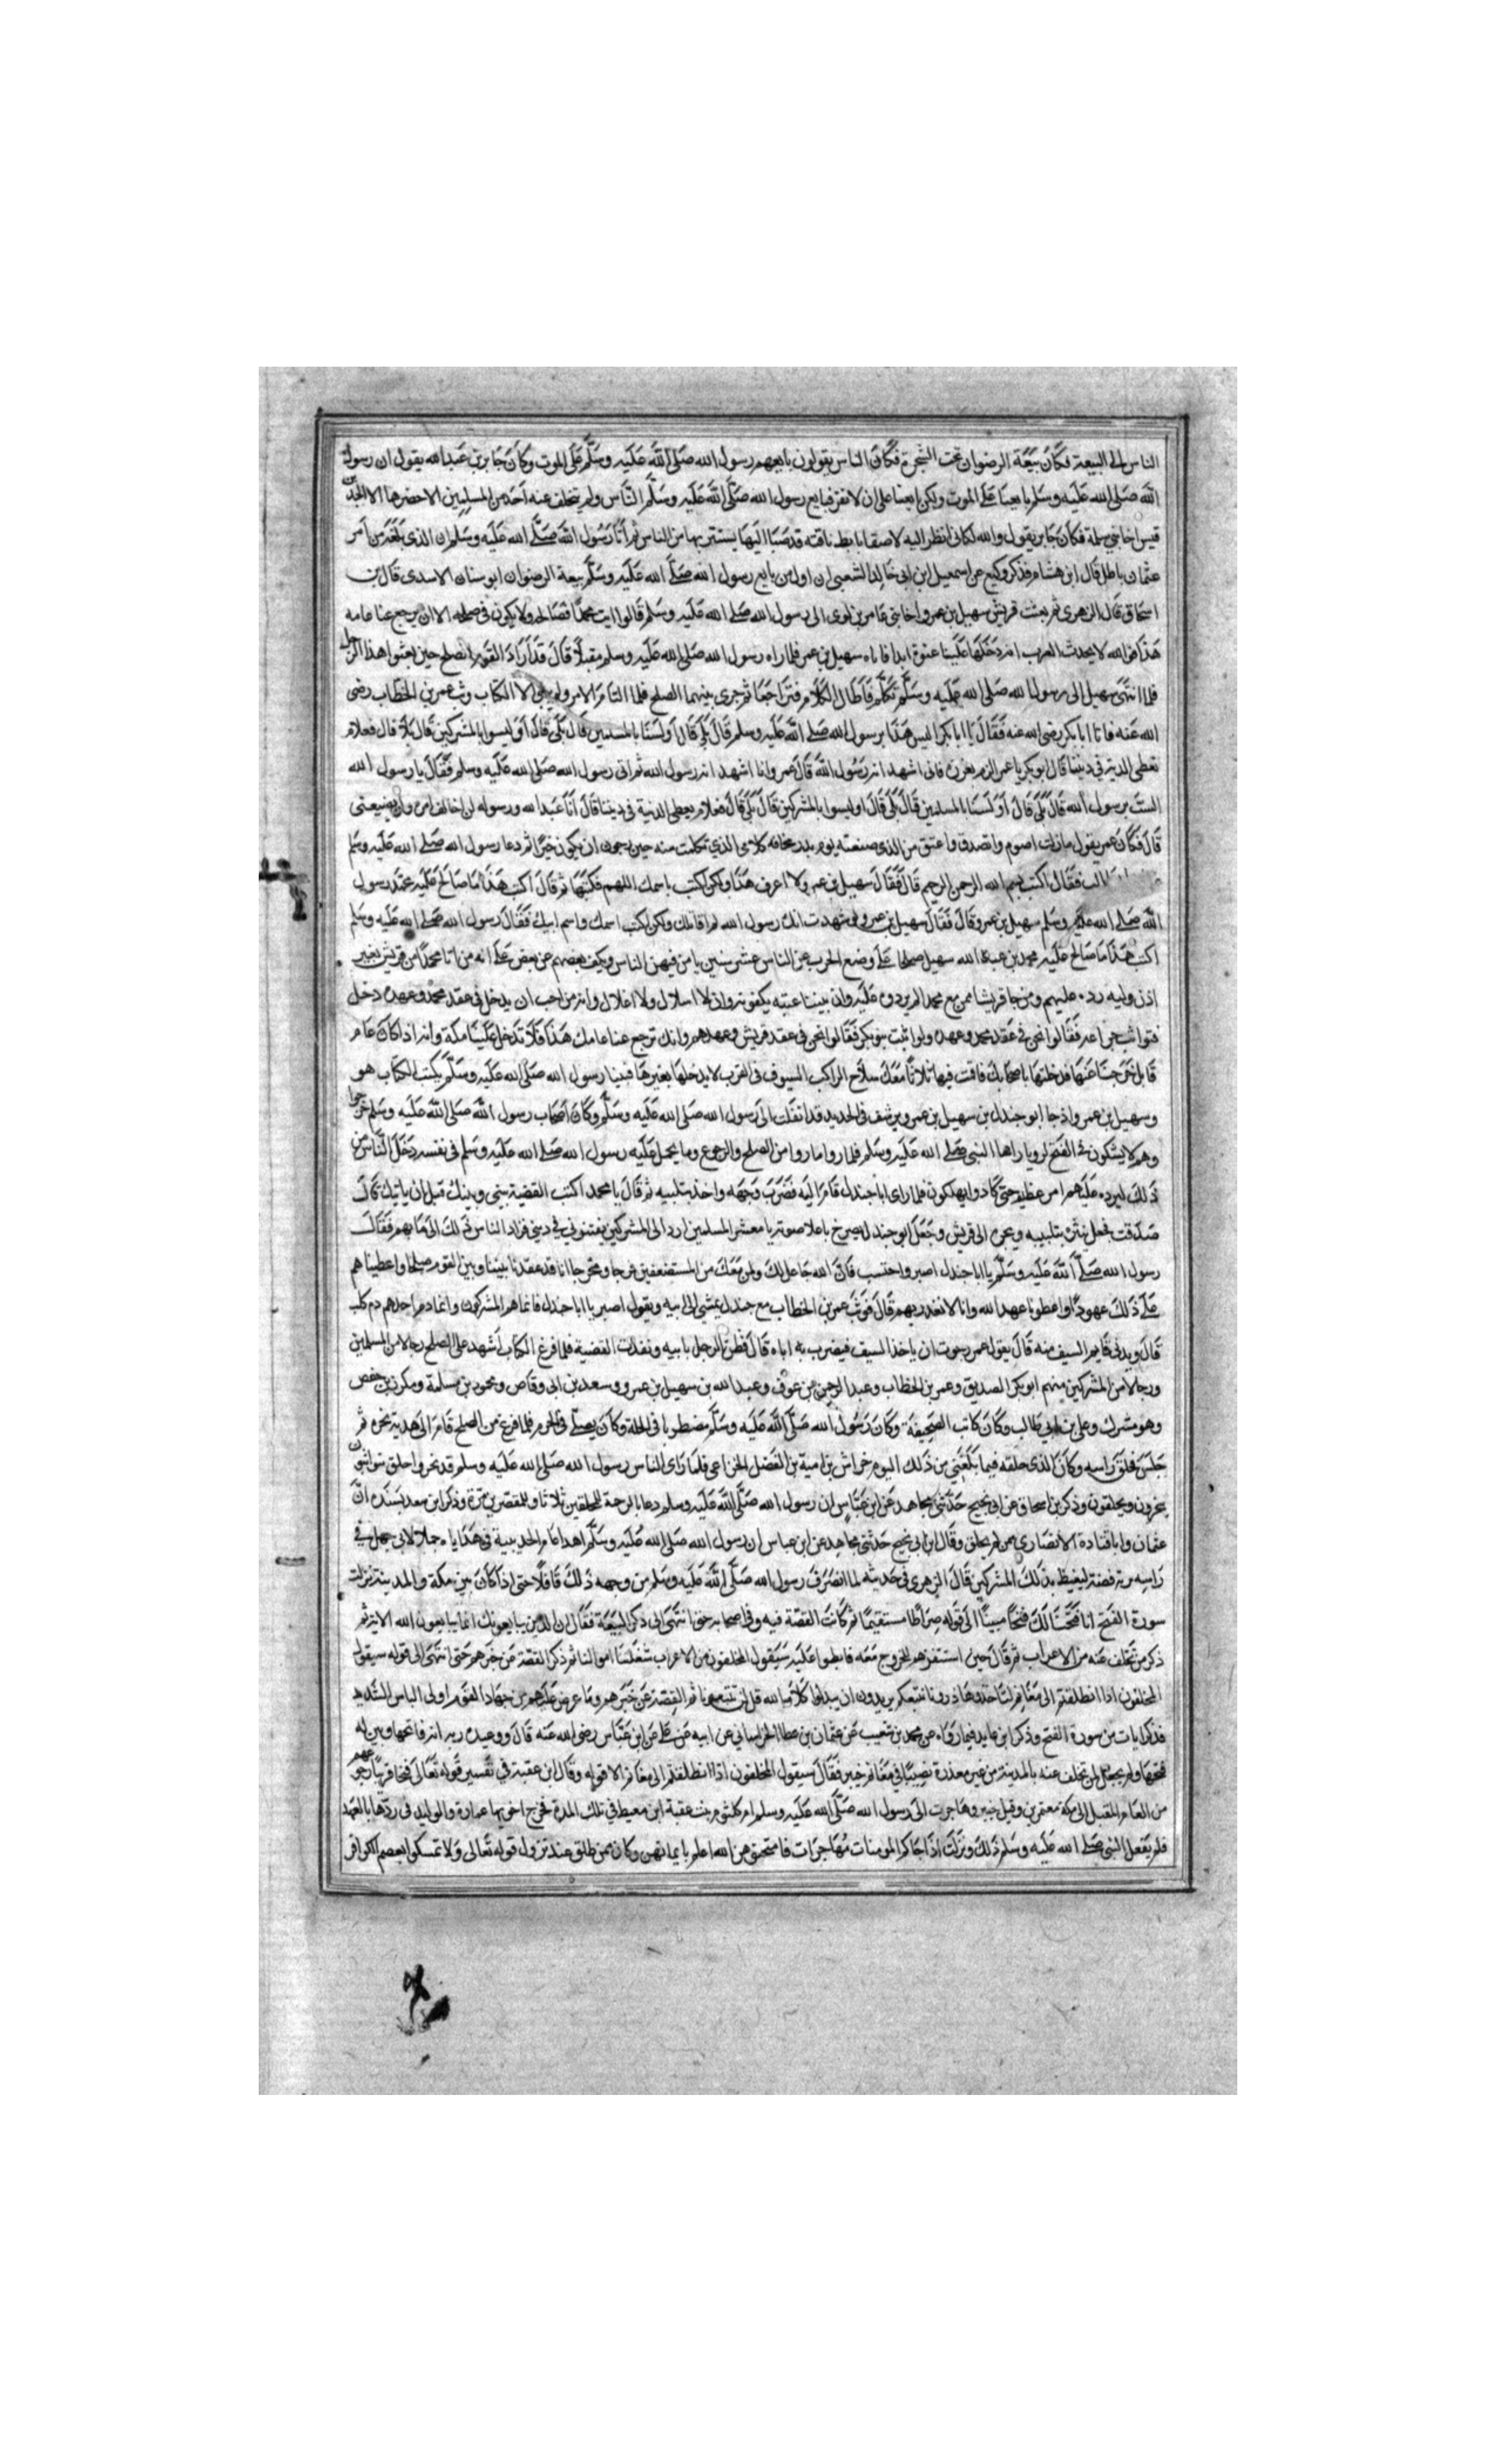 الناس الى البيعة فكان بيعة الرضوان تحت الشجرة فكان الناس يقولون بايعهم رسول الله صلى الله عليه وسلم على الموت وكان جابر بن عبد الله يقول ان رسول
الله صلى الله عليه وسلم لم يبايعنا على الموت ولكن بايعنا على ان لا نفر فبايع رسول الله صلى الله عليه وسلم الناس ولم يتخلف عنه احد من المسلمين الا حضرها الا الجد بن
قيس اخا بني سلمة فكان جابر يقول والله لكاني انظر اليه لاصقا بابط ناقته قد صبا اليها يستتر بها من الناس ثم اتا رسول الله صلى الله عليه وسلم ان الذي بلغه من امر
عثمان باطل قال ابن هشام فذكر وكيع عن اسمعيل ابن ابي خالد الشعبي ان اول من بايع رسول الله صلى الله عليه وسلم بيعة الرضوان ابو سنان الاسدي قال بن
اسحاق قال الزهري ثم بعثت قريش سهيل بن عمرو اخا بني عامر بن لوى الى رسول الله صلى الله عليه وسلم قالوا ايت محمدا فصالحه ولا يكون في صلحه الا ان يرجع عنا عامه
هذا فوالله لا يحدث العرب انه دخلها علينا عنوة ابدا فاتاه سهيل بن عمر فلما راه رسول الله صلى الله عليه وسلم مقبلا قال قد اراد القوم الصلح حين بعثوا هذا الرجل
فلما انتهى سهيل الى رسول الله صلى الله عليه وسلم تكلم فاطال الكلام فتراجعا ثم جرى بينهما الصلح فلما التام الامر ولم يبق الا الكتاب وثب عمر بن الخطاب رضى
الله عنه فاتا ابا بكر رضى الله عنه فقال يا ابا بكر اليس هذا برسول الله صلى الله عليه وسلم قال بلى قال اولسنا بالمسلمين قال بلى قال اوليسوا بالمشركين قال بلا قال فعلام
نعطى الدنية في ديننا قال ابو بكر يا عمر الزم بغرزه فاني اشهد انه رسول الله قال عمر وانا اشهد انه رسول الله ثم اتى رسول الله صلى الله عليه وسلم فقال يا رسول الله
الست برسول الله قال بلى قال اولسنا بالمسلمين قال بلى قال اوليسوا بالمشركين قال بلى قال فعلام نعطى الدنية في ديننا قال انا عبد الله ورسوله لن اخالف امره ولن يضيعني
قال فكان عمر يقول مازلت اصوم واتصدق واعتق من الذي صنعته يومئذ مخافه كلامي الذي تكلمت منه حين رجوت ان يكون خيرا ثم دعا رسول الله صلى الله عليه وسلم
فقال اكتب بسم الله الرحمن الرحيم قال فقال سهيل بن عمرو لا اعرف هذا ولكن اكتب باسمك اللهم فكتبها ثم قال اكتب هذا ما صالح عليه محمد رسول
الله صلى الله عليه وسلم سهيل بن عمرو قال فقال سهيل بن عمرو لو شهدت انك رسول الله لم اقاتلك ولكن اكتب اسمك واسم ابيك فقال رسول الله صلى الله عليه وسلم
اكتب هذا ما صالح عليه محمد بن عبد الله سهيل صلحا على وضع الحرب عن الناس عشر سنين يامن فيهن الناس ويكف بعضهم عن بعض على انه من اتا محمدا من قريش بغير
اذن وليه رده عليهم ومن جا قريشا ممن مع محمد لم يردوه عليه وان بيننا عيبه مكفوفه وانه لا اسلال ولا اغلال وانه من احب ان يدخل في عقد محمد وعهده دخل
فتواثبت خزاعه فقالوا نحن في عقد محمد وعهده وتواثبت بنو بكر فقالوا نحن في عقد قريش وعهدهم وانك ترجع عنا عامك هذا فلا تدخل علينا مكة وانه اذا كان عام
قابل خرجنا عنها فدخلتها باصحابك فاقمت فيها ثلاثا معك سلاح الراكب السيوف في القرب لا يدخلها بغيرها فبينا رسول الله صلى الله عليه وسلم يكتب الكتاب هو
وسهيل بن عمرو اذ جا ابو جندل بن سهيل بن عمرو يرشف في الحديد قد انفلت الى رسول الله صلى الله عليه وسلم وكان اصحاب رسول الله صلى الله عليه وسلم خرجوا
وهم لا يشكون في الفتح لرويا راها النبي صلى الله عليه وسلم فلما راوا ما راوا من الصلح والرجوع وما يحمل عليه رسول الله صلى الله عليه وسلم في نفسه دخل الناس من
ذلك امر عظيم حتى كادوا يهلكون فلما راى ابا جندل قام اليه فضرب وجهه واخذ بتلبيه ثم قال يا محمد اكتب القضية بيني وبينك قبل ان ياتيك قال
صدقت فجعل ينثره بتلبيبه ويجره الى قريش وجعل ابو جندل يصرخ باعلا صوته يا معشر المسلمين ارد الى المشركين يفتنوني في ديني فزاد الناس ذلك الى ما بهم فقال
رسول الله صلى الله عليه وسلم يا ابا جندل اصبر واحتسب فان الله جاعل لك ولمن معك من المستضعفين فرجا ومخرجا انا قد عقدنا بيننا وبين القوم صلحا واعطيناهم
على ذلك عهودا واعطونا عهد الله وانا لا نغدر بهم قال فوثب عمر بن الخطاب مع جندل يمشي الى ابيه ويقول اصبر يا ابا جندل فانما هم المشركون وانما دم احدهم دم كلب
قال ويدني قايم السيف منه قال يقول عمر رجوت ان ياخذ السيف فيضرب به اباه قال فظن الرجل بابيه ونفذت القضية فلما فرغ الكتاب اشهد على الصلح رجالا من المسلمين
ورجالا من المشركين منهم ابو بكر الصديق وعمر بن الخطاب وعبد الرحمن بن عوف وعبد الله بن سهيل بن عمرو وسعد بن ابي وقاص ومحمود بن مسلمة ومكرز بن حفص
وهو مشرك وعلي بن ابي طالب وكان كاتب الصحيفة وكان رسول الله صلى الله عليه وسلم مضطربا في الحل وكان يصلي في الحرم فلما فرغ من الصلح قام الى هديه نحره ثم
جلس فحلق راسه وكان الذي حلقه فيما بلغني من ذلك اليوم خراش بن امية بن الفضل الخزاعي فلما راى الناس رسول الله صلى الله عليه وسلم قد نحر واحلق تواثبوا
ينحرون ويحلقون وذكر بن اسحاق عن ابي نجيح حدثني مجاهد عن ابن عباس ان رسول الله صلى الله عليه وسلم دعا بالرحمة للمحلقين ثلاثا وللمقصرين مرة وذكر ابن سعد بسنده ان
عثمان وابا قتادة الانصاري ممن لم يحلق وقال ابن ابي نجيح حدثني مجاهد عن ابن عباس ان رسول الله صلى الله عليه وسلم اهدا عام الحديبية في هداياه جملا لابي جهل في
راسه برة فضة ليغيظ بذلك المشركين قال الزهري في حديثه لما انصرف رسول الله صلى الله عليه وسلم من وجهه ذلك قافلا حتى اذا كان بين مكة والمدينة نزلت
سورة الفتح انا فتحنا لك فتحا مبينا الى قوله صراطا مستقيما ثم كانت القصة فيه وفي اصحابه حتى انتهى الى ذكر البيعة فقال ان الذين يبايعونك انما يبايعون الله الاية ثم
ذكر من تخلف عنه من الاعراب ثم قال حين استنفرهم للخروج معه فابطوا عليه سيقول المخلفون من الاعراب شغلتنا اموالنا ثم ذكر القصة عن خبرهم حتى انتهى الى قوله سيقول
المخلفون اذا انطلقتم الى مغانم لتاخذوها ذرونا نتبعكم يريدون ان يبدلوا كلام الله قل لن تتبعونا ثم القصة عن خبرهم وما عرض عليهم من جهاد القوم اولى الباس الشديد
فذكر ايات من سورة الفتح وذكر ابن عايد فيما رواه عن محمد بن شعيب عن عثمان بن عطا الخراساني عن ابيه عن عكرمة عن ابن عباس رضى الله عنه قال ووعده ربه انه فاتحها وبين له
فتحها ولم يجعل لمن تخلف عنه بالمدينة من غير معذرة نصيبا في مغانم خيبر فقال سيقول المخلفون اذا انطلقتم الى مغانم الا قوله وقال ابن عقبة في تفسير قوله تعالى فتحا قريبا رجوعهم
من العام المقبل الى مكة معتمرين وقيل خيبر وهاجرت الى رسول الله صلى الله عليه وسلم ام كلثوم بنت عقبة ابن معيط في تلك المدة فخرج اخويها عمارة والوليد في ردها بالعهد
فلم يفعل النبي صلى الله عليه وسلم ذلك ونزلت اذا جاكم المومنات مهاجرات فامتحنوهن الله اعلم بايمانهن وكان ممن طلق عند نزول قوله تعالى ولا تمسكوا بعصم الكوافر